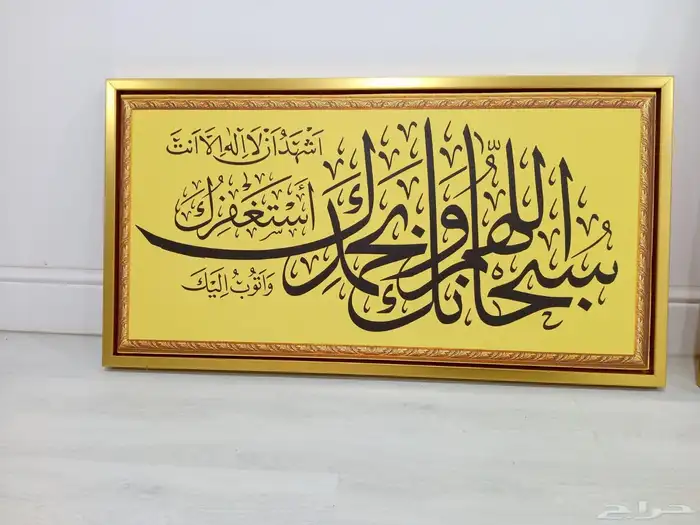 سُبْحَانَكَ اللّٰهُمَّ وَبِحَمْدِكَ
اَشْهَدُ اَنْ لَا اِلٰهَ اِلَّا اَنْتَ
أَسْتَغْفِرُكَ
وَاَتُوبُ اِلَيْكَ
حراج